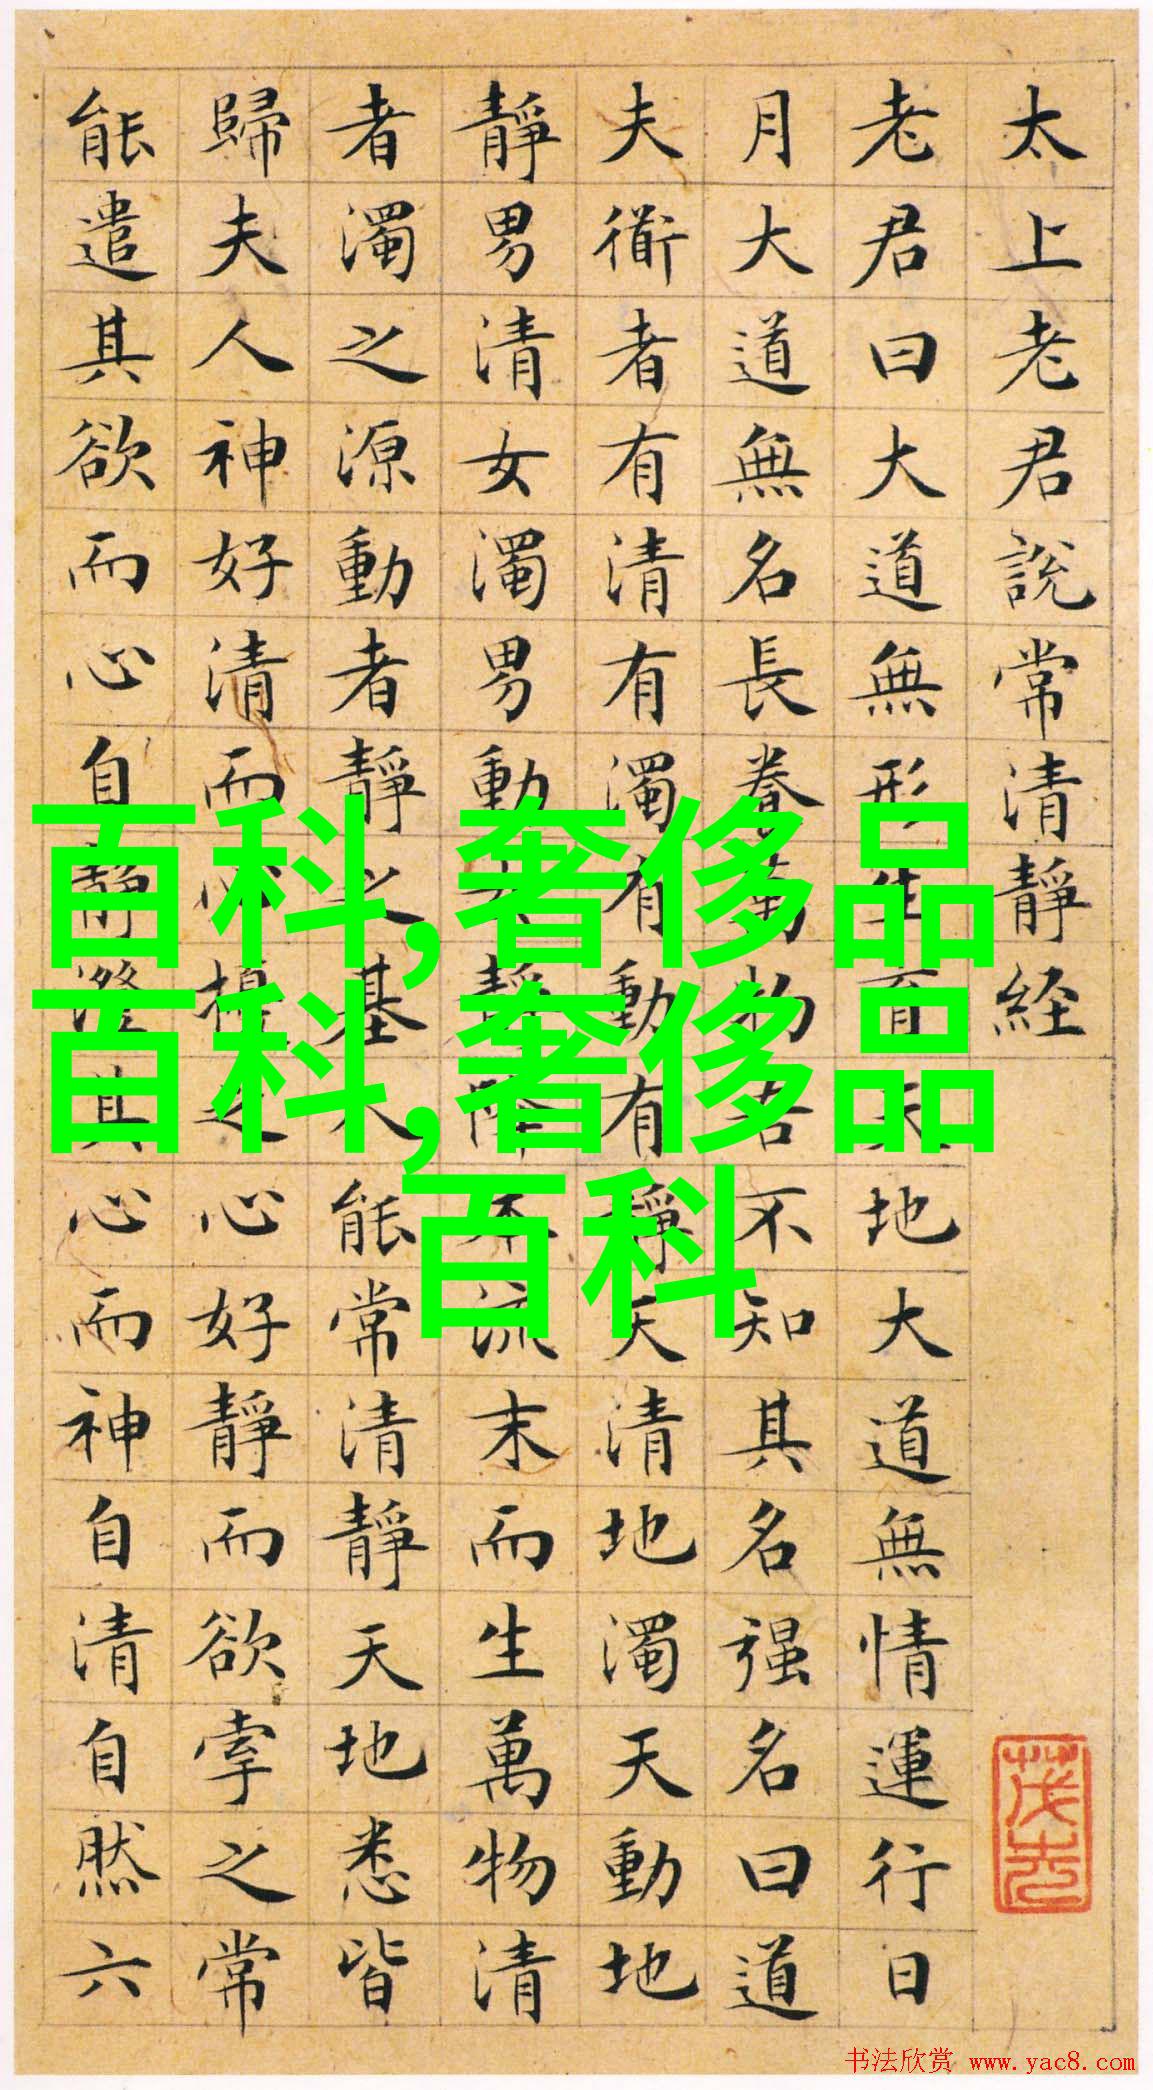 太上老君說常清靜経
老君曰大道無形生育天地大道無情運行日
月大道無名長養萬物吾不知其名强名曰道
夫衜者有清有濁有動有靜天清地濁天動地
靜男清女濁男動女靜降本流末而生萬物清
者濁之源動者靜之基人能常清靜天地悉皆
歸夫人神好清而心擾之心好靜而欲牽之常
能遣其欲而心自靜澄其心而神自清自然六
百科,奢侈品
百科,奢侈品
百科
书法欣赏 www.yac8.com